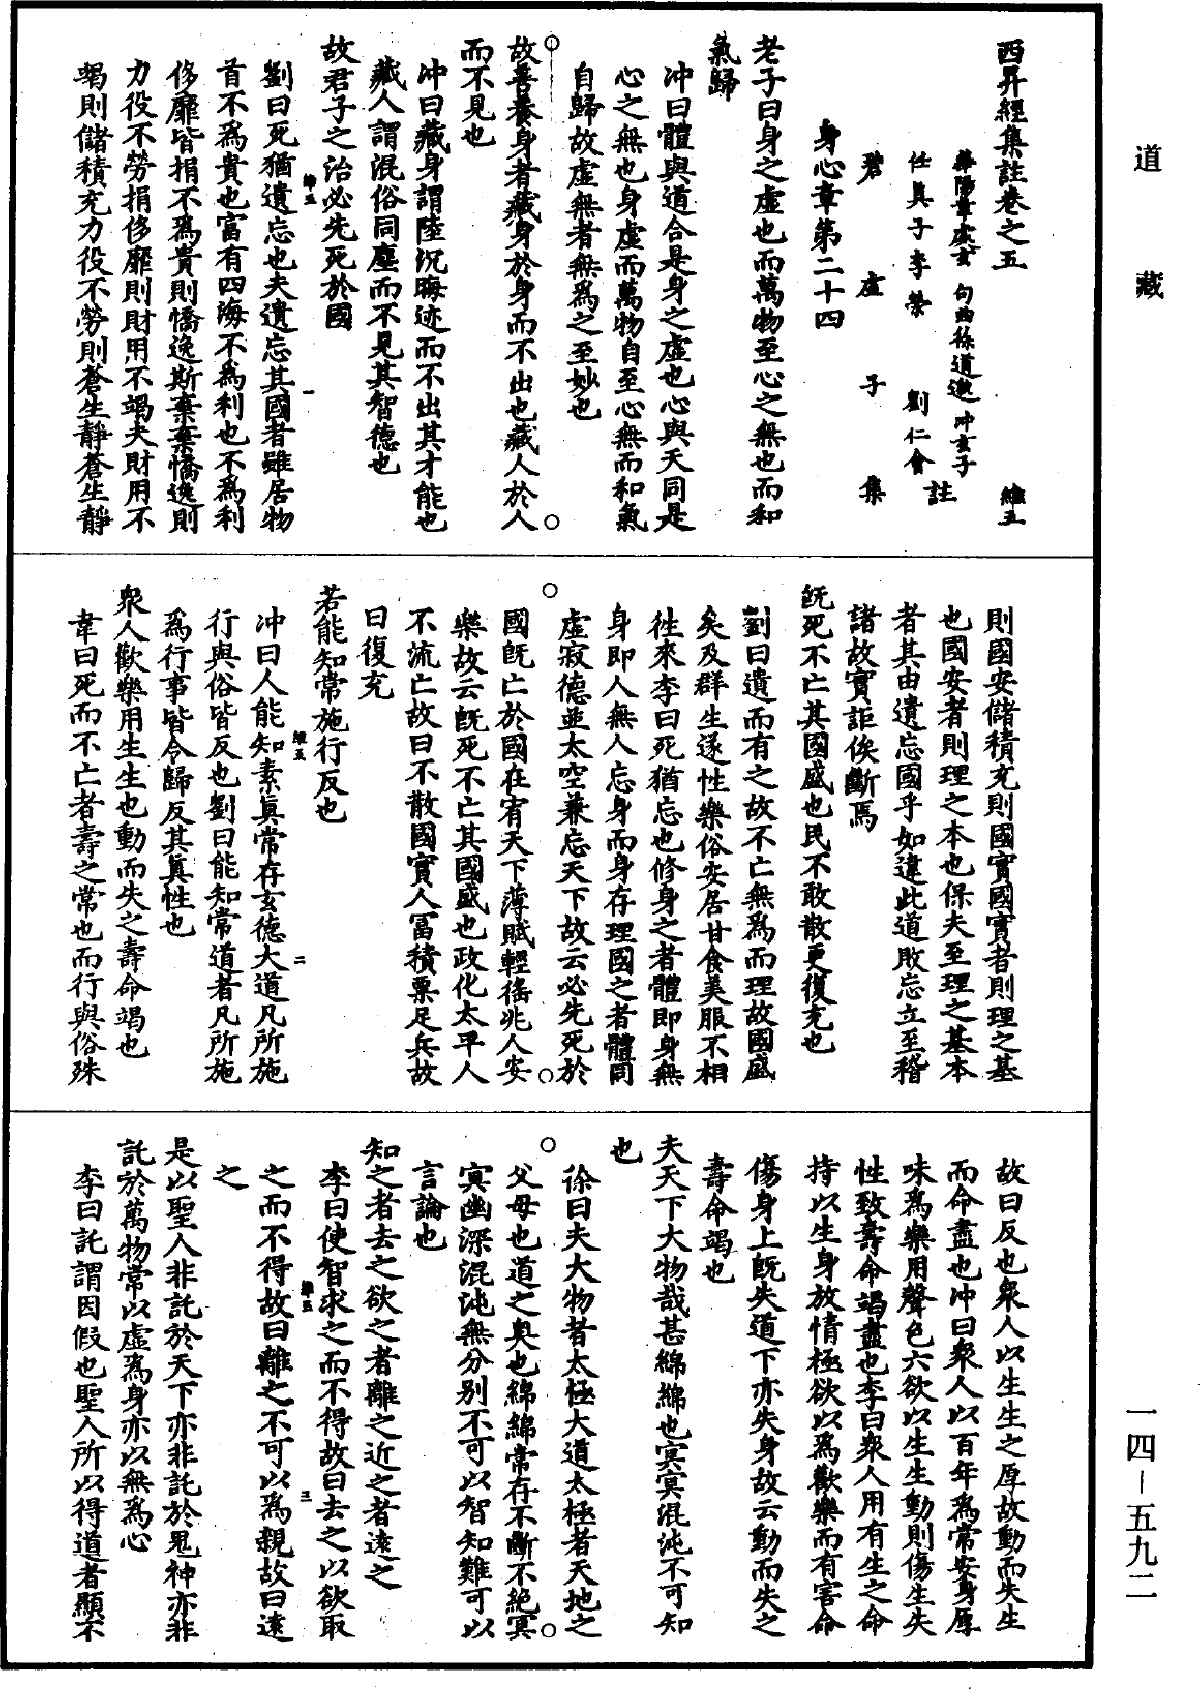 道藏
西昇經集註卷之五
維五
華陽韋處玄 句曲徐道邈 冲玄子
任真子李榮 劉仁會 註
碧虛子集
身心章第二十四
老子曰身之虛也而萬物至心之無也而和
氣歸
冲曰體與道合是身之虛也心與天同是
心之無也身虛而萬物自至心無而和氣
自歸故虛無者無爲之至妙也
故善養身者藏身於身而不出也藏人於人
而不見也
冲曰藏身謂陸沉晦迹而不出其才能也
藏人謂混俗同塵而不見其智德也
故君子之治必先死於國
劉曰死猶遺忘也夫遺忘其國者雖居物
首不爲貴也富有四海不爲利也不爲利
侈靡皆捐不爲貴則憍逸斯棄棄憍逸則
力役不勞捐侈靡則財用不竭夫財用不
竭則儲積充力役不勞則蒼生靜蒼生靜
則國安儲積充則國實國實者則理之基
也國安者則理之本也保夫至理之基本
者其由遺忘國乎如違此道敗忘立至稽
諸故實詎俟斷焉
旣死不亡其國盛也民不敢散更復充也
劉曰遺而有之故不亡無爲而理故國盛
矣及群生遂性樂俗安居甘食美服不相
徃來李曰死猶忘也修身之者體即身無
身即人無人忘身而身存理國之者體同
虛寂德並太空兼忘天下故云必先死於
國旣亡於國在宥天下薄賦輕徭兆人安
樂故云旣死不亡其國盛也政化太平人
不流亡故曰不散國實人冨積粟足兵故
曰復充
若能知常施行反也
冲曰人能知素真常存玄德大道凡所施
行與俗皆反也劉曰能知常道者凡所施
爲行事皆令歸反其真性也
衆人歡樂用生生也動而失之壽命竭也
韋曰死而不亡者壽之常也而行與俗殊
故曰反也衆人以生生之厚故動而失生
而命盡也冲曰衆人以百年爲常安身厚
味爲樂用聲色六欲以生生動則傷生失
性致壽命竭盡也李曰衆人用有生之命
持以生身放情極欲以爲歡樂而有害命
傷身上旣失道下亦失身故云動而失之
壽命竭也
夫天下大物哉甚綿綿也冥冥混沌不可知
也
徐曰夫大物者太極大道太極者天地之
父母也道之奥也綿綿常存不斷不絶冥
冥幽深混沌無分别不可以智知難可以
言論也
知之者去之欲之者離之近之者遠之
李曰使智求之而不得故曰去之以欲取
之而不得故曰離之不可以爲親故曰遠
之
是以聖人非託於天下亦非託於鬼神亦非
託於萬物常以虛爲身亦以無爲心
李曰託謂因假也聖人所以得道者顯不
維五 一
維五 二
維五 三
一四－五九二